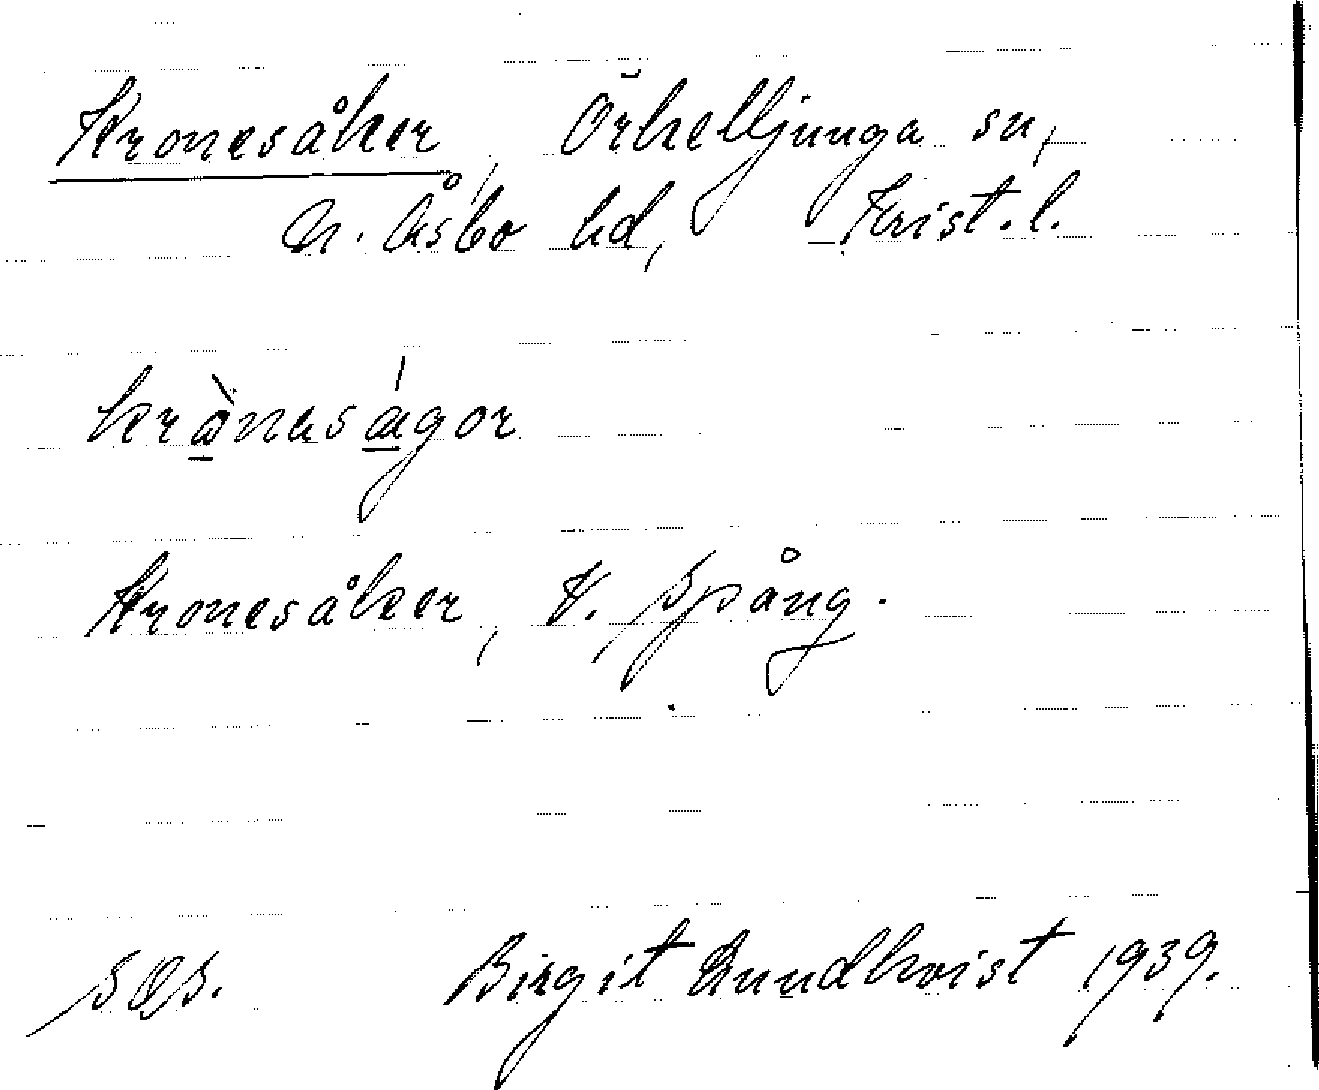 Kronesåker, Örkelljunga sn,
N. Åsbo hd, Krist. l.
krònaságor
Kronesåker, V. Spång.
Birgit Lundkvist 1939.